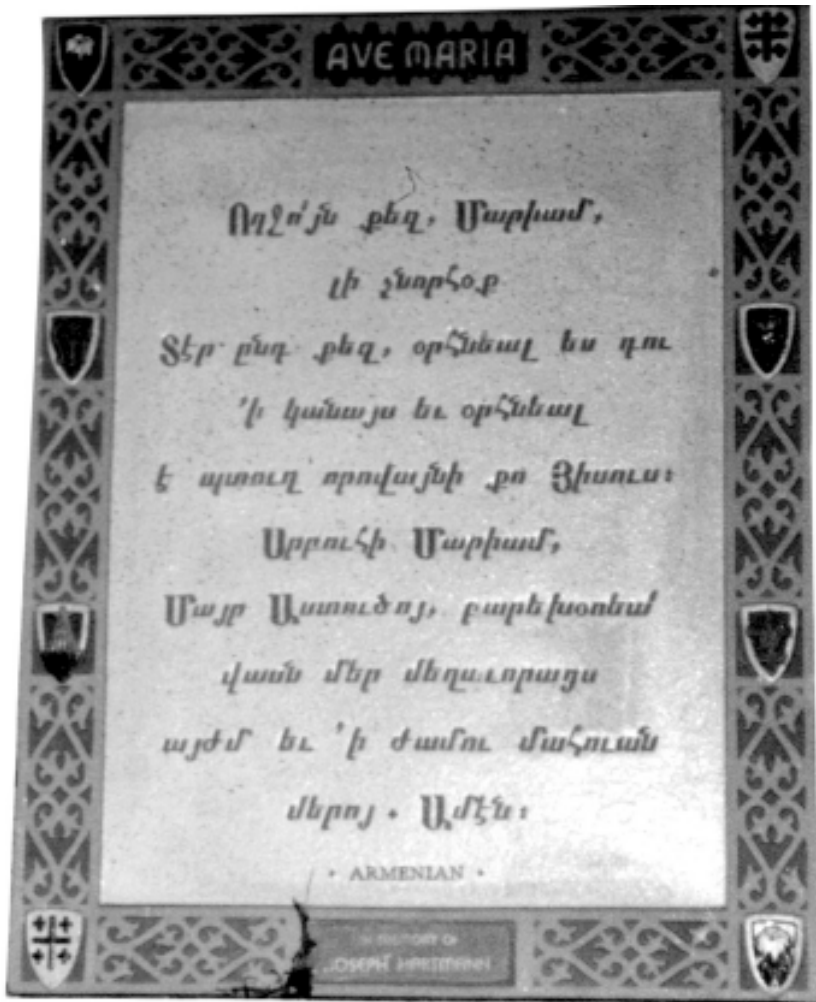 AVE MARIA
Ողջո՛յն քեզ, Մարիամ,
լի շնորհօք
Տէր ընդ քեզ, օրհնեալ ես դու
՚ի կանայս եւ օրհնեալ
է պտուղ որովայնի քո Յիսուս։
Սրբուհի Մարիամ,
Մայր Աստուծոյ, բարեխօսեա՛
վասն մեր մեղաւորացս
այժմ եւ ՚ի ժամու մահուան
մերոյ . Ամէն։
• ARMENIAN •
IN MEMORY OF
JOSEPH HARTMANN